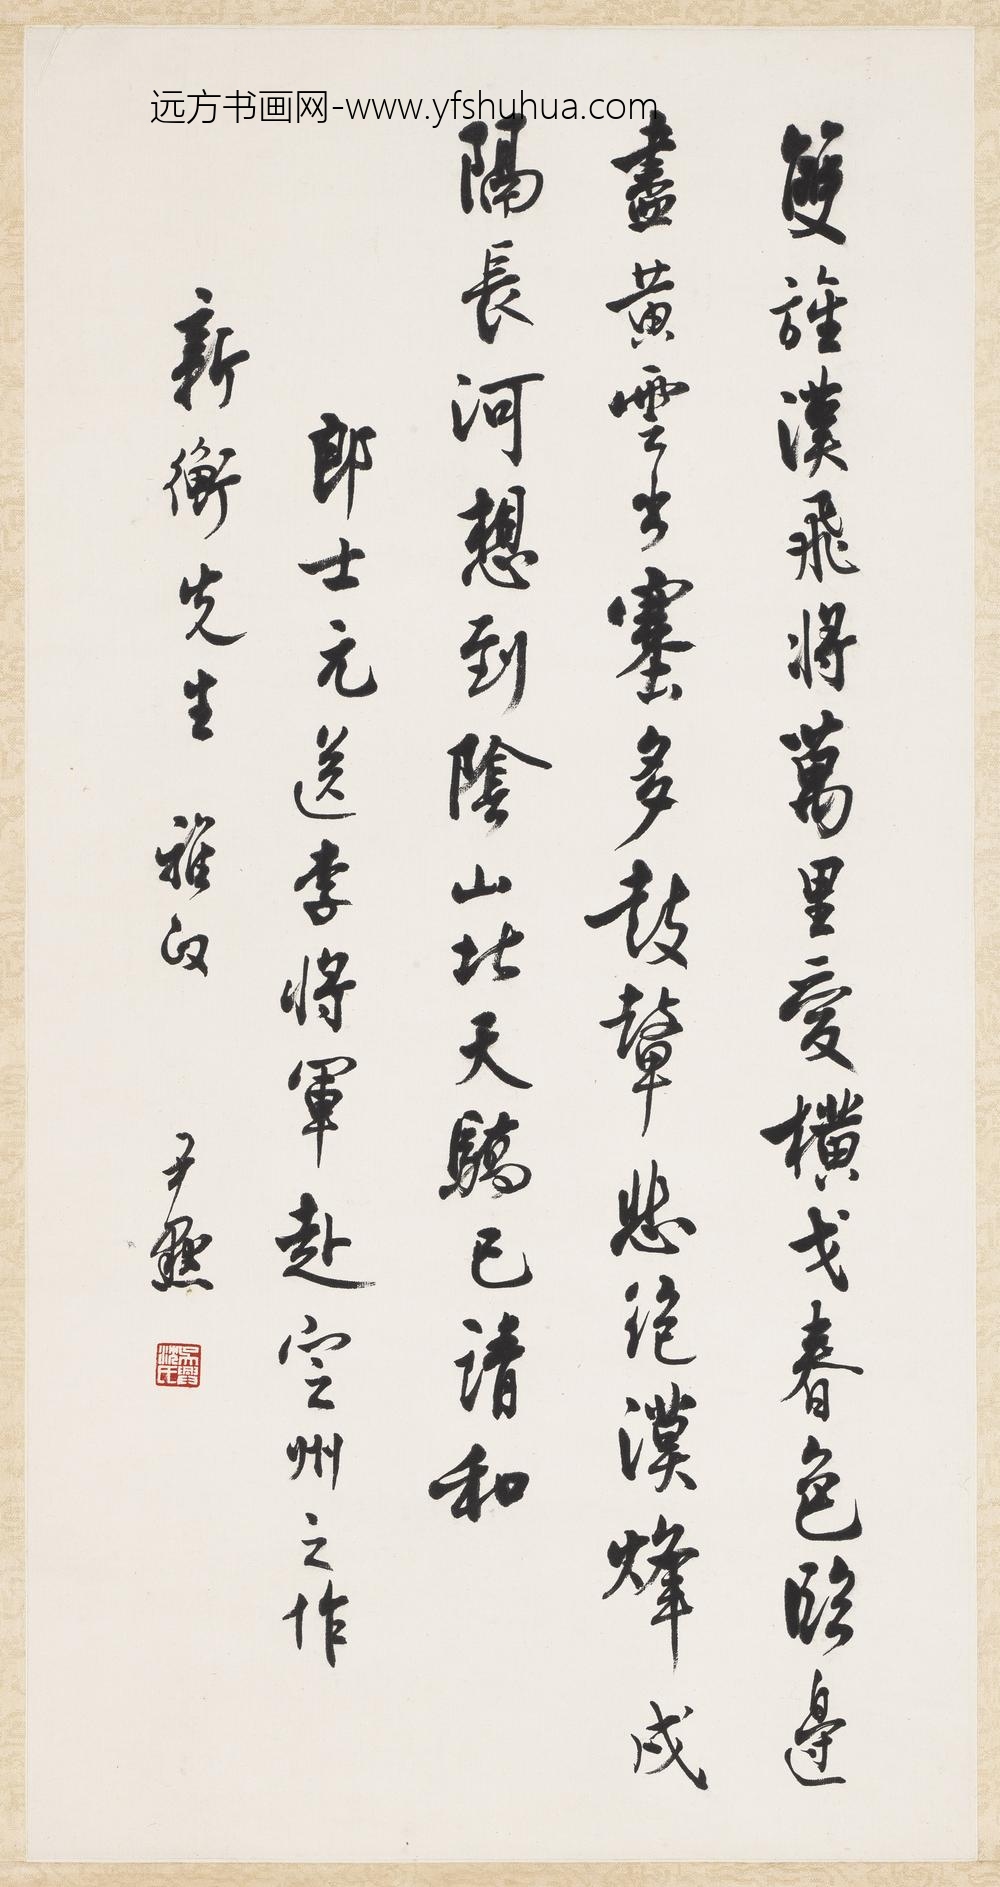 远方书画网-www.yfshuhua.com
雙旌漢飛將萬里受橫戈春色臨邊
盡黃雲出塞多鼓鼙悲絕漠烽戍
隔長河想到陰山北天驕已請和
郎士元送李將軍赴定州之作
新衡先生 雅政 尹默
吳興沈氏